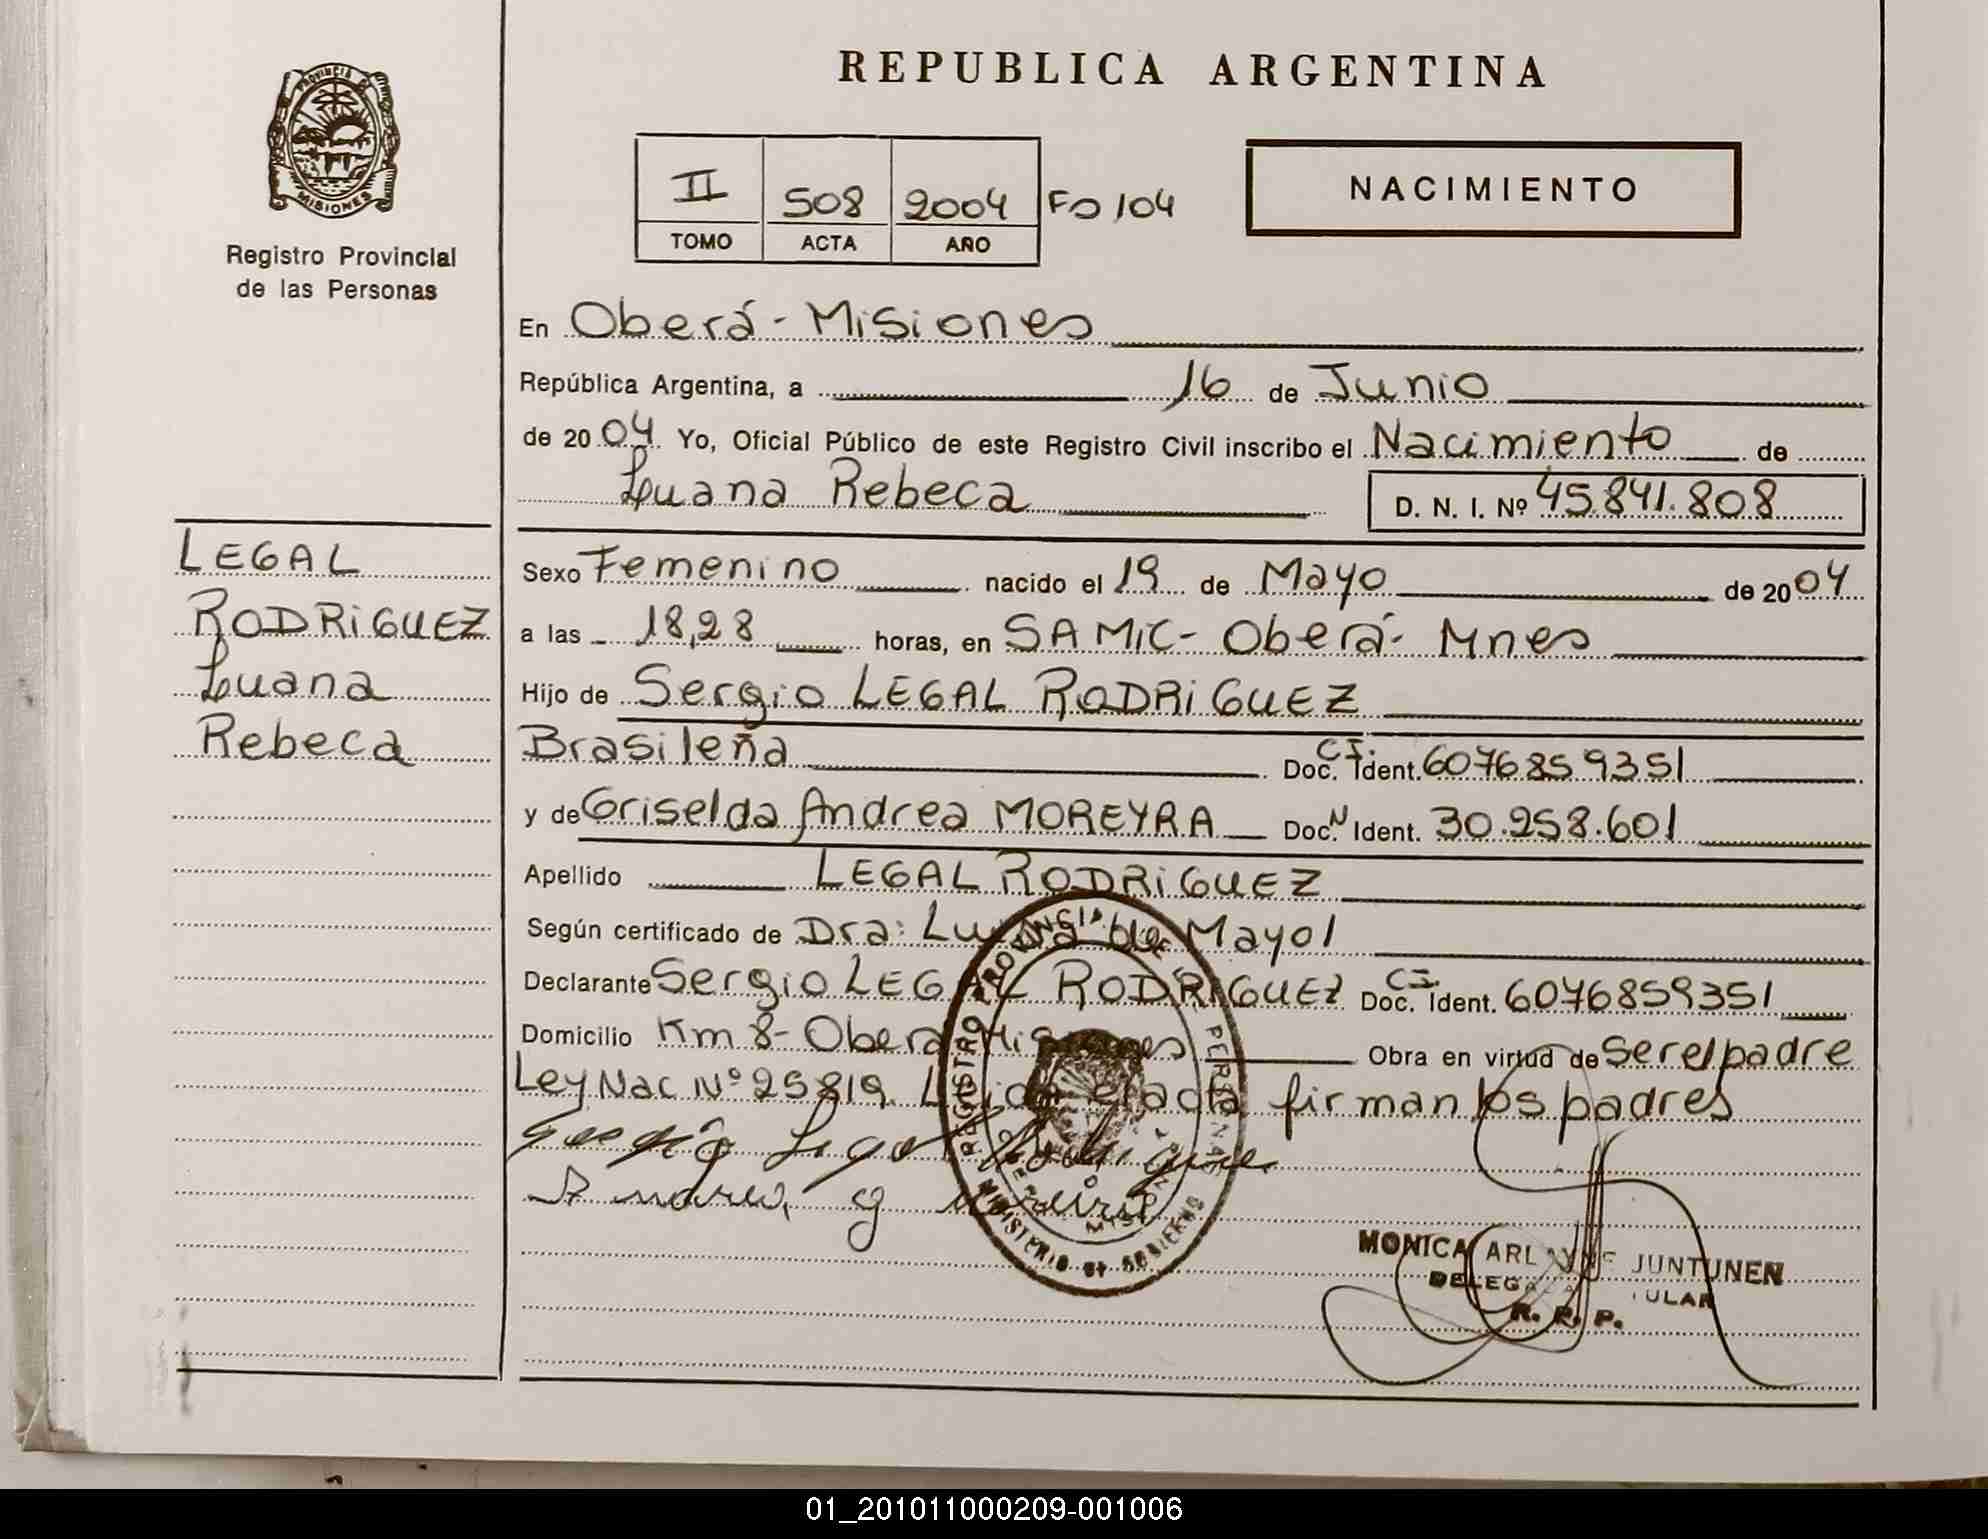 REPUBLICA ARGENTINA
PROVINCIA DE MISIONES
Registro Provincial
de las Personas
II 508 2004 Fo 104
TOMO ACTA AÑO
NACIMIENTO
En Oberá - Misiones
República Argentina, a 16 de Junio
de 2004 Yo, Oficial Público de este Registro Civil inscribo el Nacimiento de
Luana Rebeca D. N. I. Nº 45.841.808
LEGAL
RODRIGUEZ
Luana
Rebeca
Sexo Femenino nacido el 19 de Mayo de 2004
a las 18,28 horas, en SAMIC - Oberá - Mnes
Hijo de Sergio LEGAL RODRIGUEZ
Brasileña C.I. Doc. Ident. 6076859351
y de Griselda Andrea MOREYRA Doc. N Ident. 30.258.601
Apellido LEGAL RODRIGUEZ
Según certificado de Dra: de Mayol
Declarante Sergio LEGAL RODRIGUEZ C.I. Doc. Ident. 6076859351
Domicilio Km 8 - Oberá Misiones Obra en virtud de ser el padre
Ley Nac Nº 25819. Leida el acta firman los padres
REGISTRO PROVINCIAL DE PERSONAS
MINISTERIO DE GOBIERNO
MISIONES
MONICA ARLAYNE JUNTUNEN
DELEGADA TITULAR
R. P. P.
01_201011000209-001006